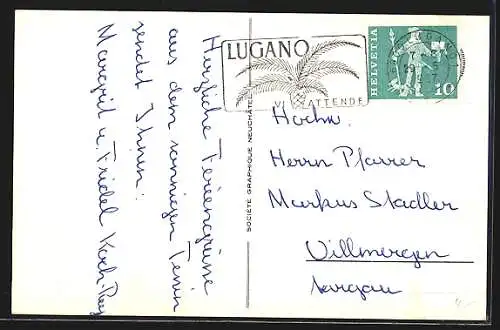 Herzliche Feriengrüsse
aus dem sonnigen Tessin
sendet Ihnen:
Margrit u. Fridel Koch-Rey
SOCIÉTÉ GRAPHIQUE NEUCHÂTEL
LUGANO
VI ATTENDE
HELVETIA
10
Hochw.
Herrn Pfarrer
Markus Stadler
Villmergen
Aargau